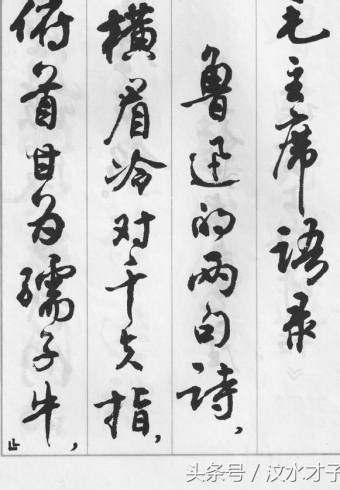 毛主席语录
鲁迅的两句诗，
横眉冷对千夫指，
俯首甘为孺子牛，
头条号／汶水才子